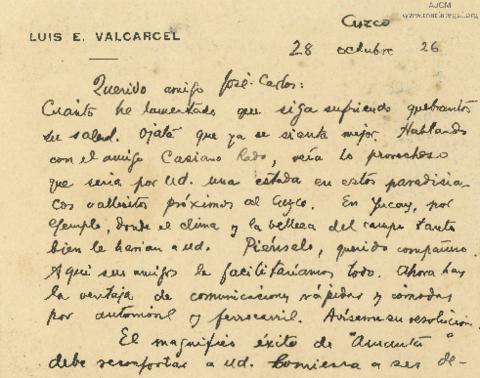 AJCM
LUIS E. VALCARCEL
Cuzco
28 octubre 26
Querido amigo José-Carlos:
Cuánto he lamentado que siga sufriendo quebrantos
su salud. Ojalá que ya se sienta mejor. Hablando
con el amigo Casiano Rado, vería lo provechoso
que sería por Ud. una estada en estos paradisia-
cos vallecitos próximos al Cuzco. En Yucay, por
ejemplo, donde el clima y la belleza del campo tanto
bien le harían a ud. Piénselo, querido compañero.
Aquí sus amigos le facilitaríamos todo. Ahora hay
la ventaja de comunicaciones rápidas y cómodas
por automóvil y ferrocarril. Avíseme su resolución.
El magnífico éxito de "Amauta"
debe reconfortar a Ud. Comienza a ser de-